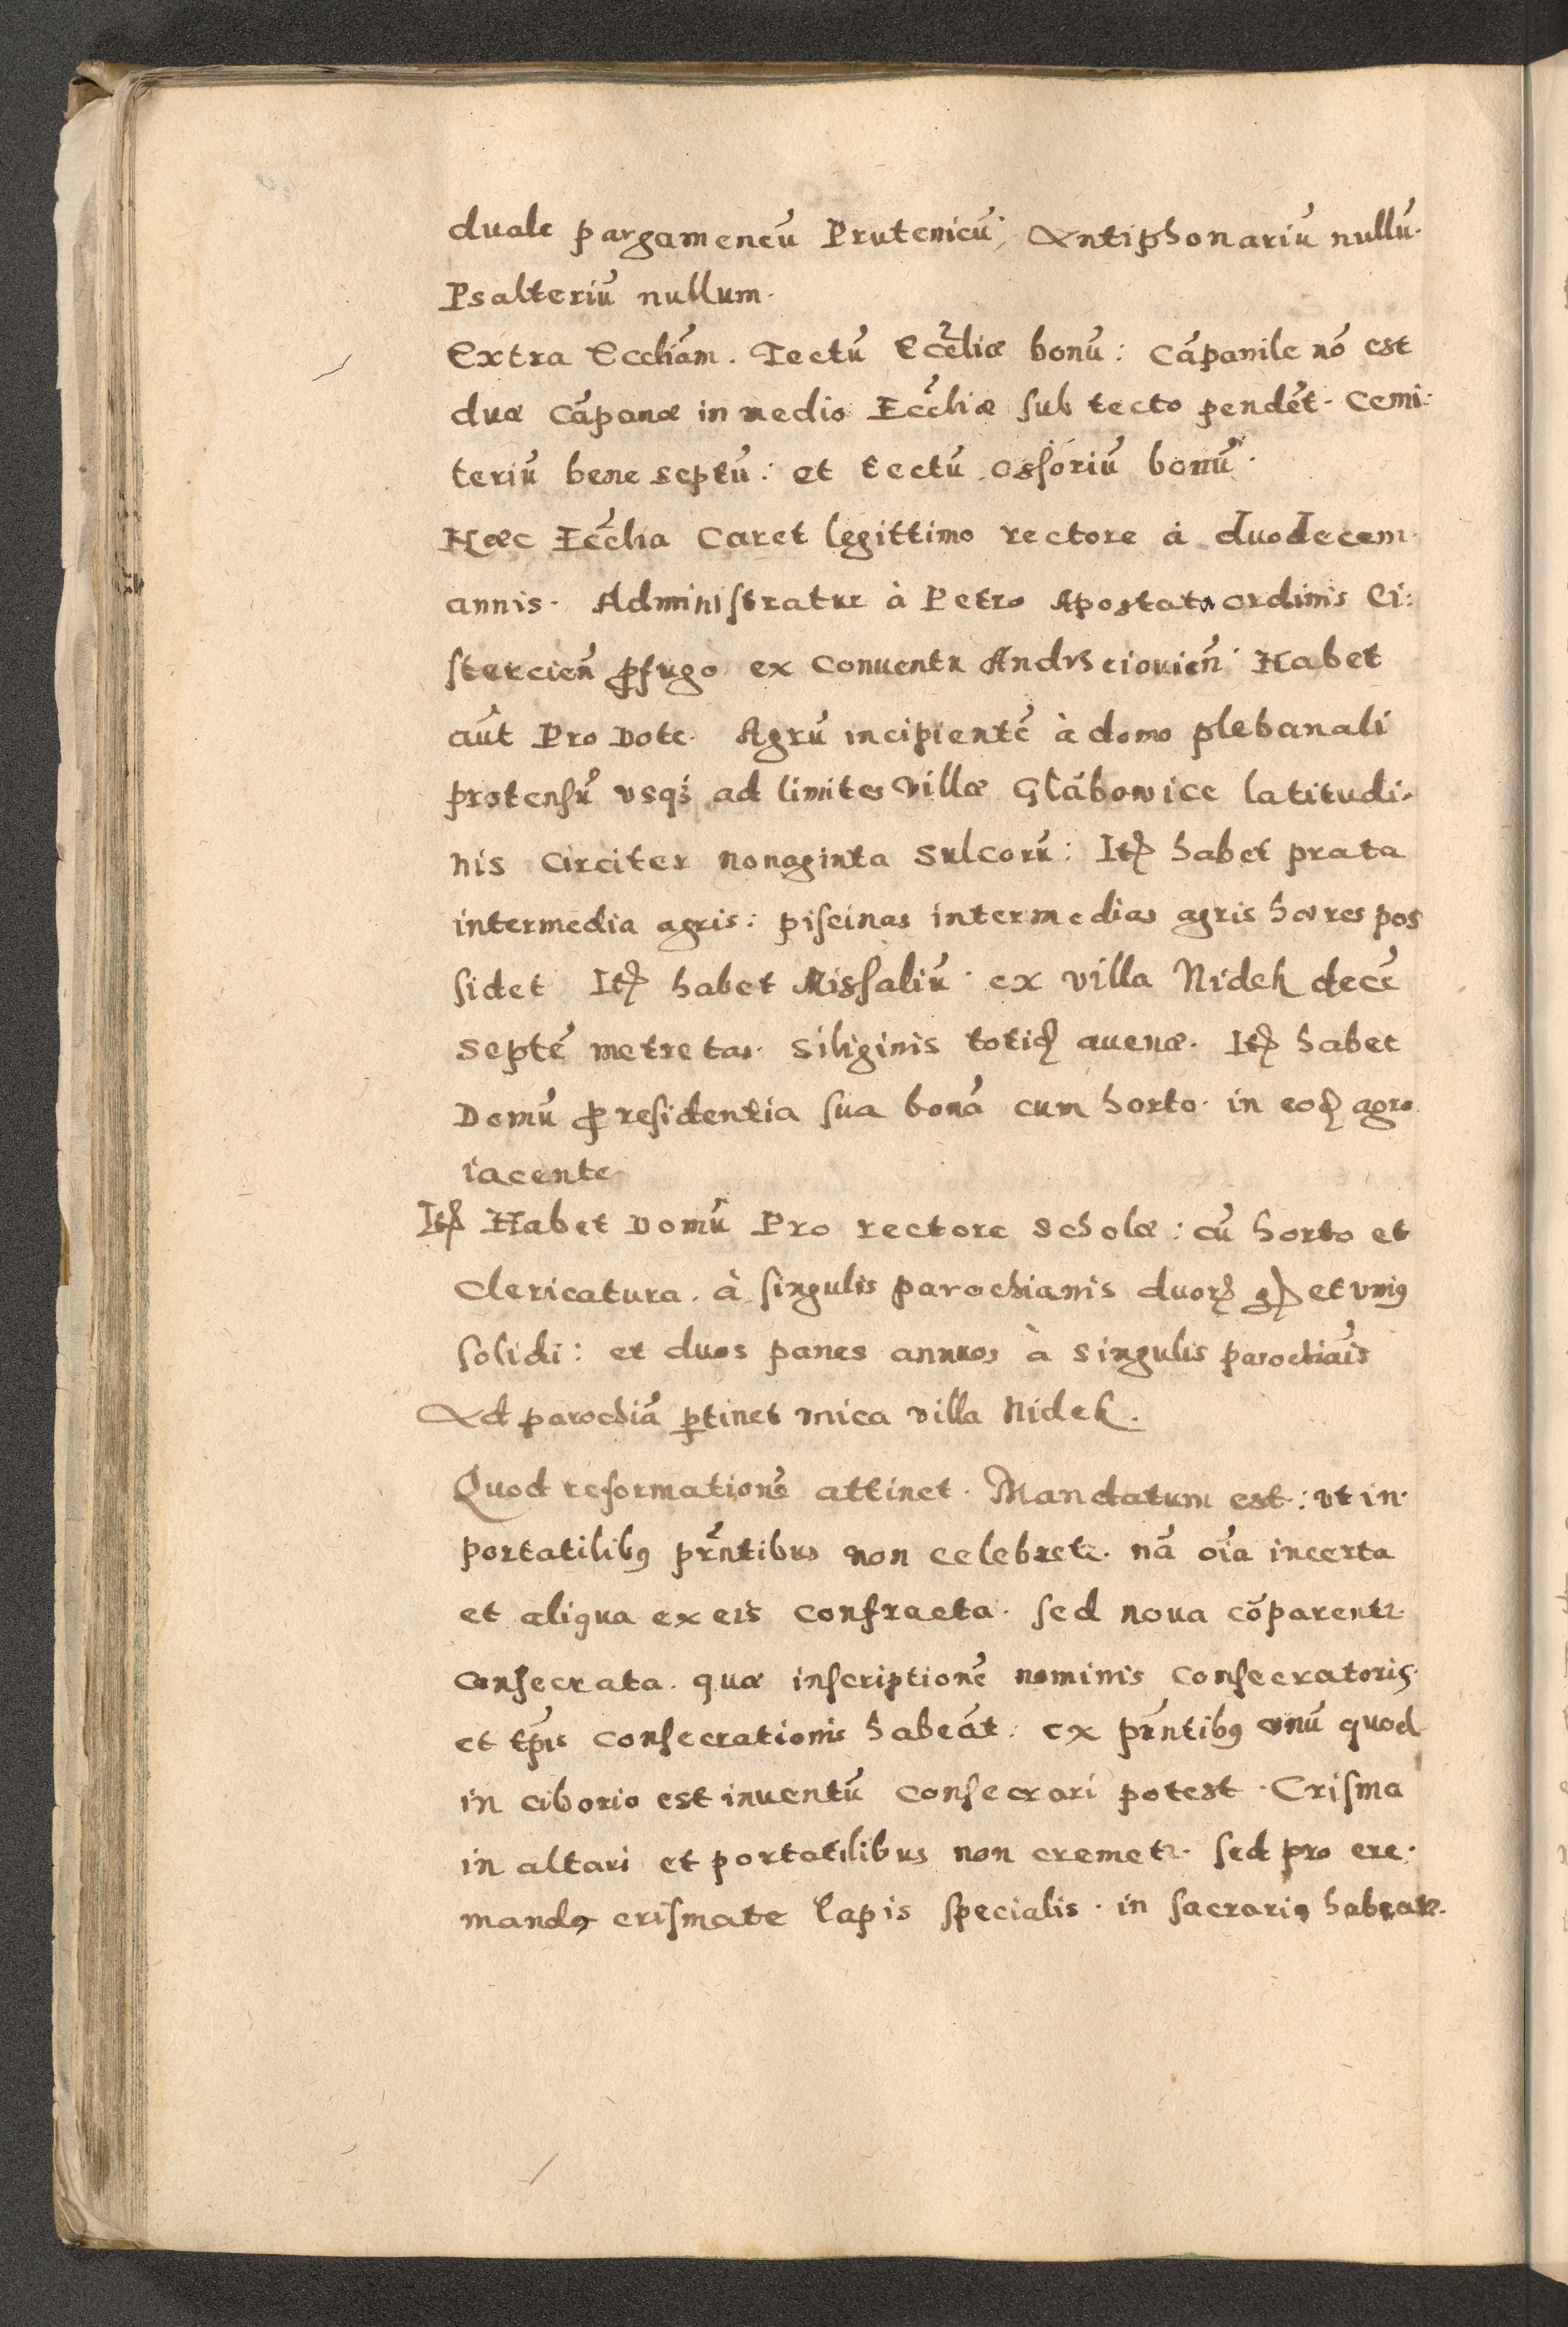 duale pargameneū Prutenicū; Antiphonariū nullū.
Psalteriū nullum.
Extra Eccliam. Tectū Eccliæ bonū: Cāpanile nō est
duæ Cāpanæ in medio Eccliæ sub tecto pendēt. Cemi:
teriū bene septū: et tectū ossoriū bonū.
Hæc Ecclia Caret legittimo rectore à duodecem
annis. Administratur à Petro Apostata ordinis Ci:
stercien̄ ꝓfugo ex Conuentu Andrzeiouien̄ Habet
aūt Pro Dote. Agrū incipientē à domo plebanali
protensū usq; ad limites villæ Glābowice latitudi:
nis Circiter nonaginta Sulcorū: Itꝫ habet prata
intermedia agris: piscinas intermedias agris hæres pos
sidet Itꝫ habet Missaliū. ex villa Nidek decē
septē metretas. Siliginis totiꝫ auenæ. Itꝫ habet
Domū ꝓ residentia sua bonā cum horto. in eoꝫ agro
iacente
Itꝫ Habet Domū Pro rectore Scholæ: cū horto et
Clericatura. à singulis parochianis duorꝫ gꝫ et vniꝰ
solidi: et duos panes annuos à singulis parochiāis
Ad parochiā ꝑtinet vnica villa Nidek.
Quod reformationē attinet. Mandatum est: vt in
portatilibꝰ prn̄tibus non celebretr. nā oīa incerta
et aliqua ex eis confracta. sed noua cōparentr
consecrata. quæ inscriptionē nominis consecratoris
et tp̄is consecrationis habeāt: ex prn̄tibꝰ vnū quod
in ciborio est inuentū consecrari potest. Crisma
in altari et portatilibus non cremetr. sed pro cre:
mando crismate lapis specialis. in sacrario habeatr.